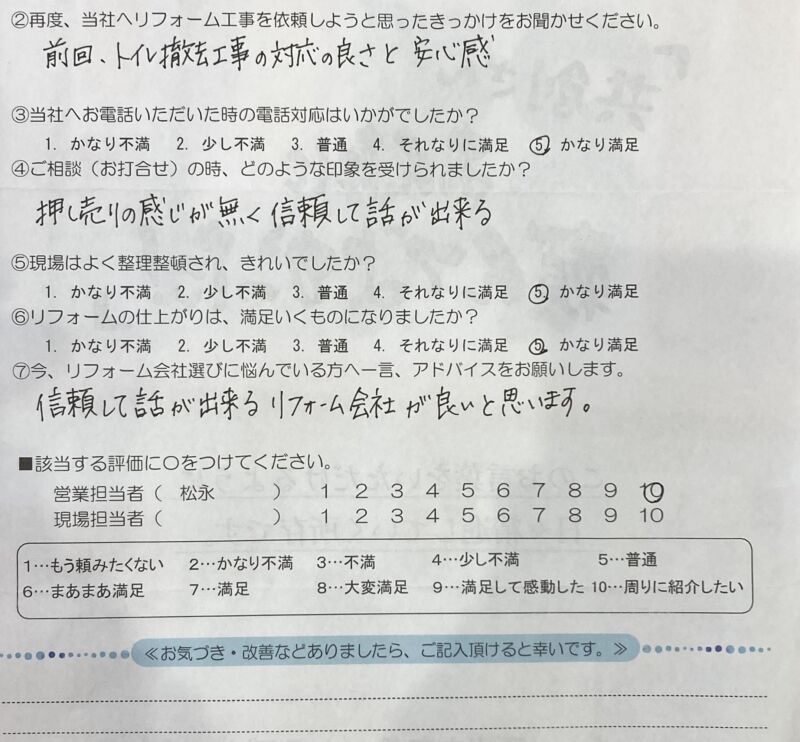 ②再度、当社へリフォーム工事を依頼しようと思ったきっかけをお聞かせください。
前回、トイレ撤去工事の対応の良さと 安心感
③当社へお電話いただいた時の電話対応はいかがでしたか？
1. かなり不満 2. 少し不満 3. 普通 4. それなりに満足 5. かなり満足
④ご相談（お打合せ）の時、どのような印象を受けられましたか？
押し売りの感じが無く信頼して話が出来る
⑤現場はよく整理整頓され、きれいでしたか？
1. かなり不満 2. 少し不満 3. 普通 4. それなりに満足 5. かなり満足
⑥リフォームの仕上がりは、満足いくものになりましたか？
1. かなり不満 2. 少し不満 3. 普通 4. それなりに満足 5. かなり満足
⑦今、リフォーム会社選びに悩んでいる方へ一言、アドバイスをお願いします。
信頼して話が出来るリフォーム会社が良いと思います。
■該当する評価に〇をつけてください。
営業担当者（ 松永 ） 1 2 3 4 5 6 7 8 9 10
現場担当者（ ） 1 2 3 4 5 6 7 8 9 10
1…もう頼みたくない 2…かなり不満 3…不満 4…少し不満 5…普通
6…まあまあ満足 7…満足 8…大変満足 9…満足して感動した 10…周りに紹介したい
≪お気づき・改善などありましたら、ご記入頂けると幸いです。≫